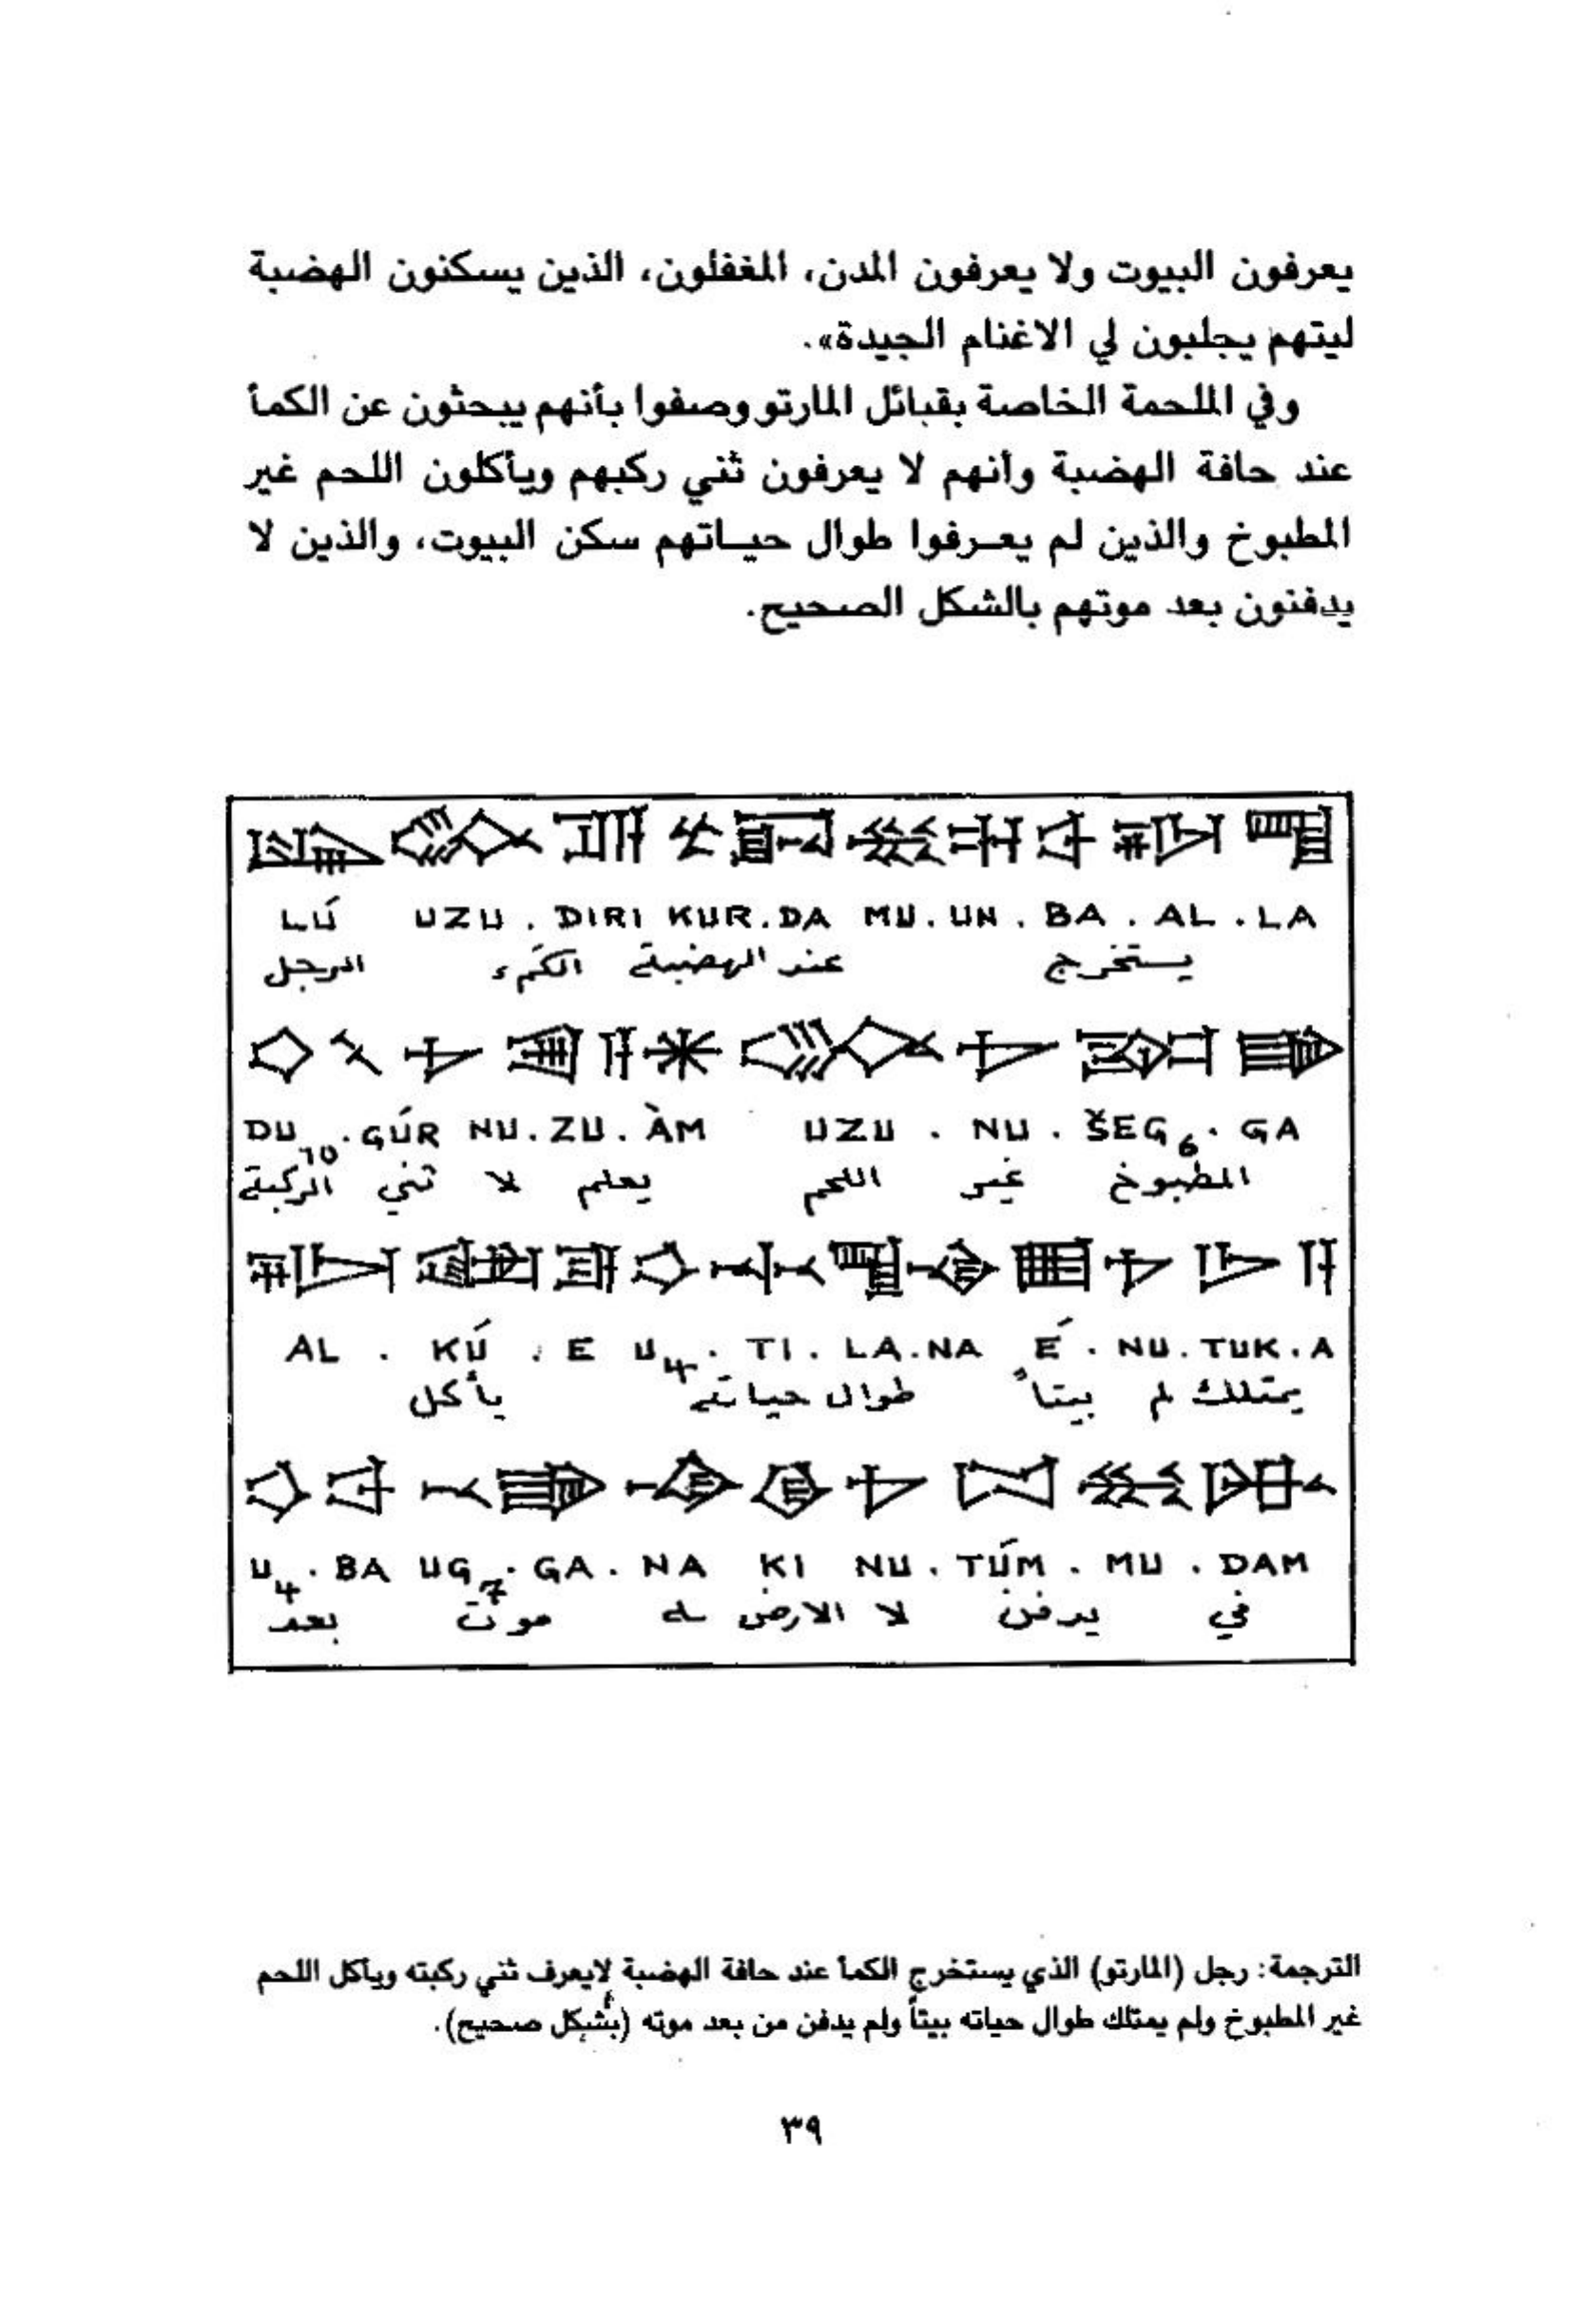 يعرفون البيوت ولا يعرفون المدن، المغفلون، الذين يسكنون الهضبة
ليتهم يجلبون لي الاغنام الجيدة».
وفي الملحمة الخاصة بقبائل المارتو وصفوا بأنهم يبحثون عن الكمأ
عند حافة الهضبة وأنهم لا يعرفون ثني ركبهم ويأكلون اللحم غير
المطبوخ والذين لم يعـرفوا طوال حيـاتهم سكن البيوت، والذين لا
يدفنون بعد موتهم بالشكل الصحيح.
LÚ UZU . DIRI KUR.DA MU.UN.BA.AL.LA
الرجل الكمء عند الهضبة يستخرج
DU₁₀.GÚR NU.ZU.ÀM UZU . NU . ŠEG₆. GA
الركبة ثني لا يعلم اللحم غير المطبوخ
AL . KÚ . E U₄. TI . LA.NA É . NU.TUK.A
يأكل طوال حياته بيتاً لم يمتلك
U₄.BA UG₇.GA.NA KI NU.TÚM.MU.DAM
بعد موت له الارض لا يدفن في
الترجمة: رجل (المارتو) الذي يستخرج الكمأ عند حافة الهضبة لايعرف ثني ركبته ويأكل اللحم
غير المطبوخ ولم يمتلك طوال حياته بيتاً ولم يدفن من بعد موته (بشكل صحيح).
٣٩